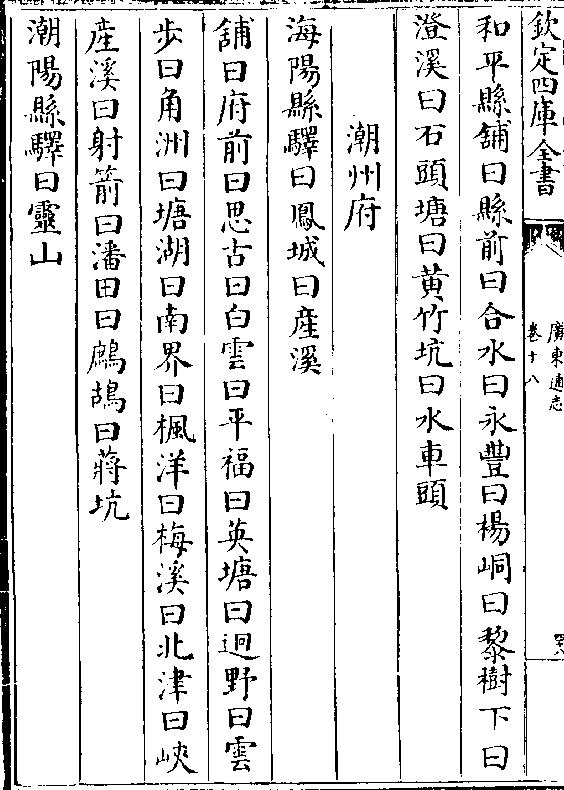 欽定四庫全書
廣東通志
卷十八
和平縣舖曰縣前曰合水曰永豐曰楊峒曰黎樹下曰
澄溪曰石頭塘曰黄竹坑曰水車頭
潮州府
海陽縣驛曰鳳城曰産溪
舖曰府前曰思古曰白雲曰平福曰英塘曰迥野曰雲
步曰角洲曰塘湖曰南界曰楓洋曰梅溪曰北津曰峽
産溪曰射箭曰潘田曰鷓鴣曰蔣坑
潮陽縣驛曰靈山